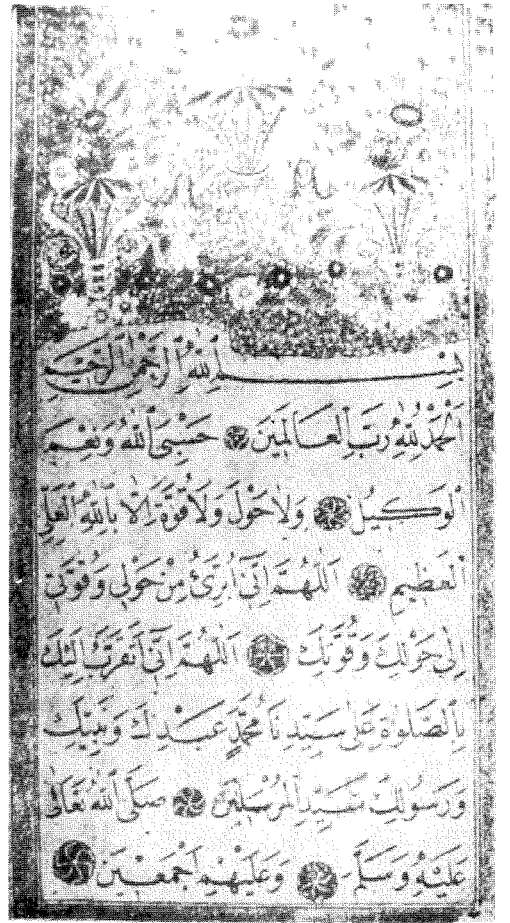 بِسْمِ اللّٰهِ الرَّحْمٰنِ الرَّحِيمِ
اَلْحَمْدُ لِلّٰهِ رَبِّ الْعَالَمِينَ حَسْبِيَ اللّٰهُ وَنِعْمَ
الْوَكِيلُ وَلَا حَوْلَ وَلَا قُوَّةَ اِلَّا بِاللّٰهِ الْعَلِيِّ
الْعَظِيمِ اَللّٰهُمَّ اِنِّي اُبَرِّئُ مِنْ حَوْلِي وَقُوَّتِي
اِلٰى حَوْلِكَ وَقُوَّتِكَ اَللّٰهُمَّ اِنِّي اَتَقَرَّبُ اِلَيْكَ
بِالصَّلٰوةِ عَلٰى سَيِّدِنَا مُحَمَّدٍ عَبْدِكَ وَنَبِيِّكَ
وَرَسُولِكَ سَيِّدِ الْمُرْسَلِينَ صَلَّى اللّٰهُ تَعَالٰى
عَلَيْهِ وَسَلَّمَ وَعَلَيْهِمْ اَجْمَعِينَ